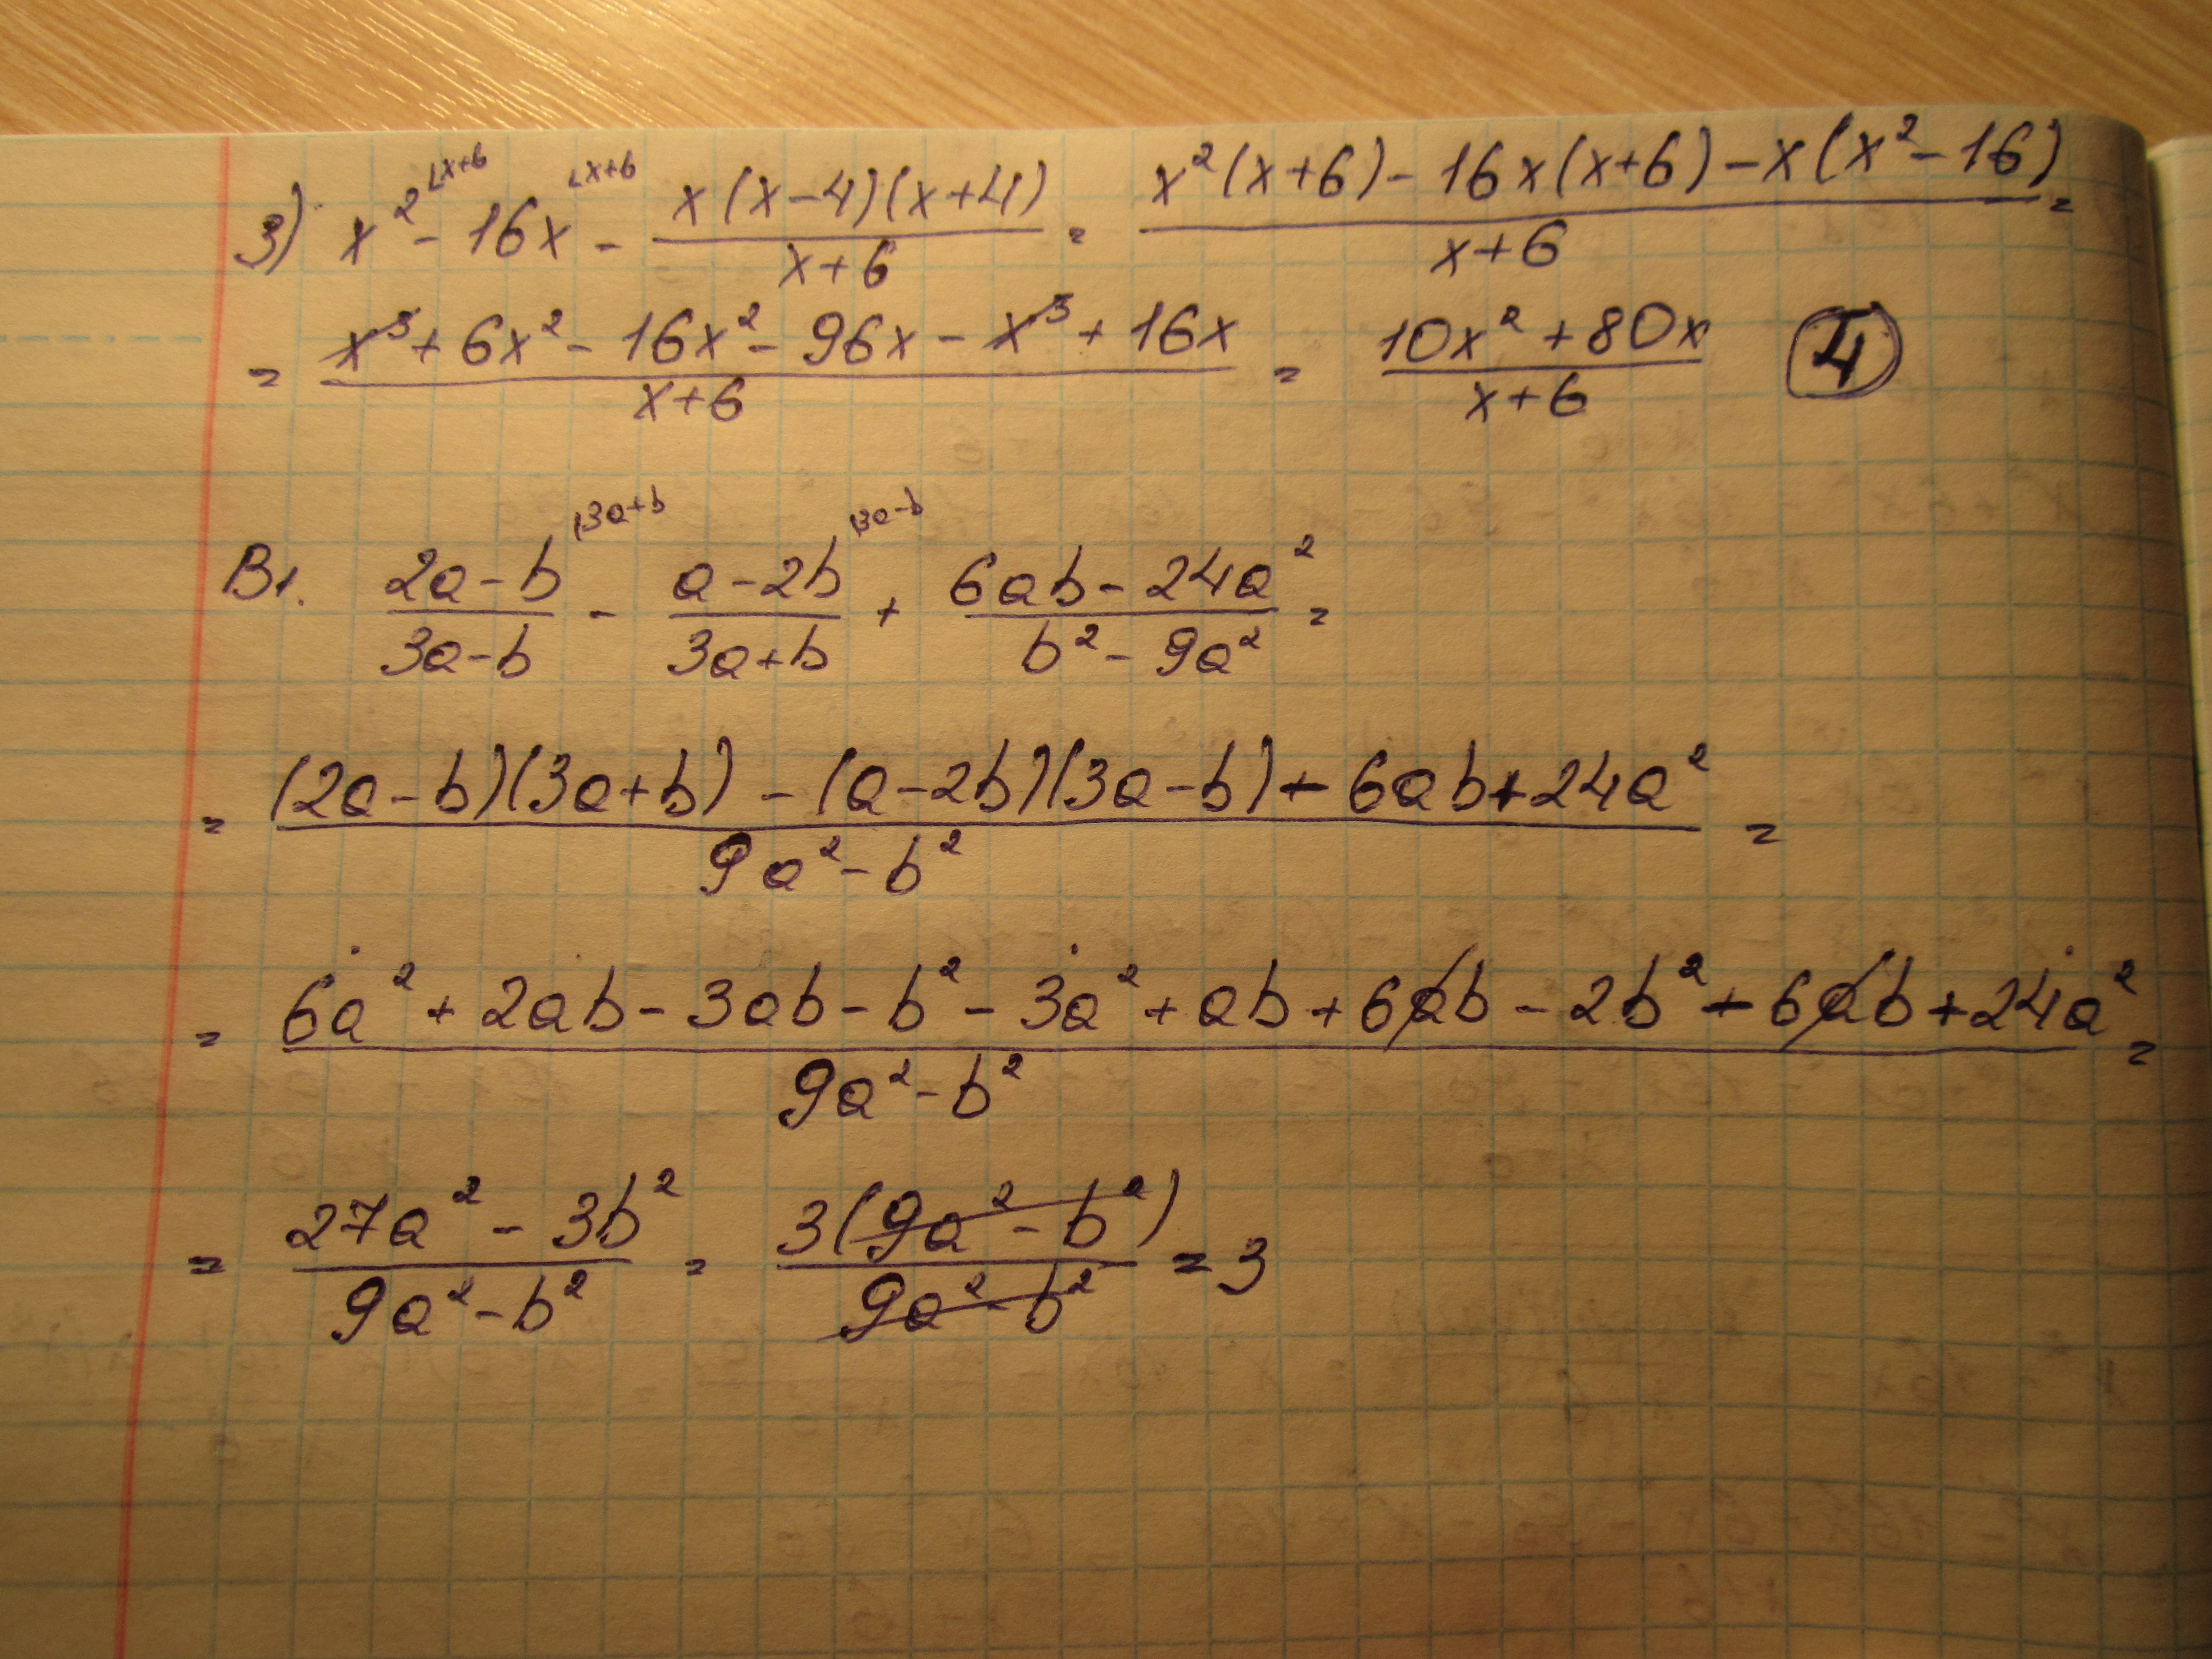 3) x² ⌊x+6 - 16x ⌊x+6 - x(x-4)(x+4)/x+6 = x²(x+6) - 16x(x+6) - x(x²-16)/x+6 =
= x³ + 6x² - 16x² - 96x - x³ + 16x/x+6 = 10x² + 80x/x+6 4
B1. 2a-b/3a-b |3a+b - a-2b/3a+b |3a-b + 6ab - 24a²/b² - 9a² =
= (2a-b)(3a+b) - (a-2b)(3a-b) - 6ab + 24a²/9a² - b² =
= 6a² + 2ab - 3ab - b² - 3a² + ab + 6ab - 2b² - 6ab + 24a²/9a² - b² =
= 27a² - 3b²/9a² - b² = 3(9a² - b²)/9a² - b² = 3